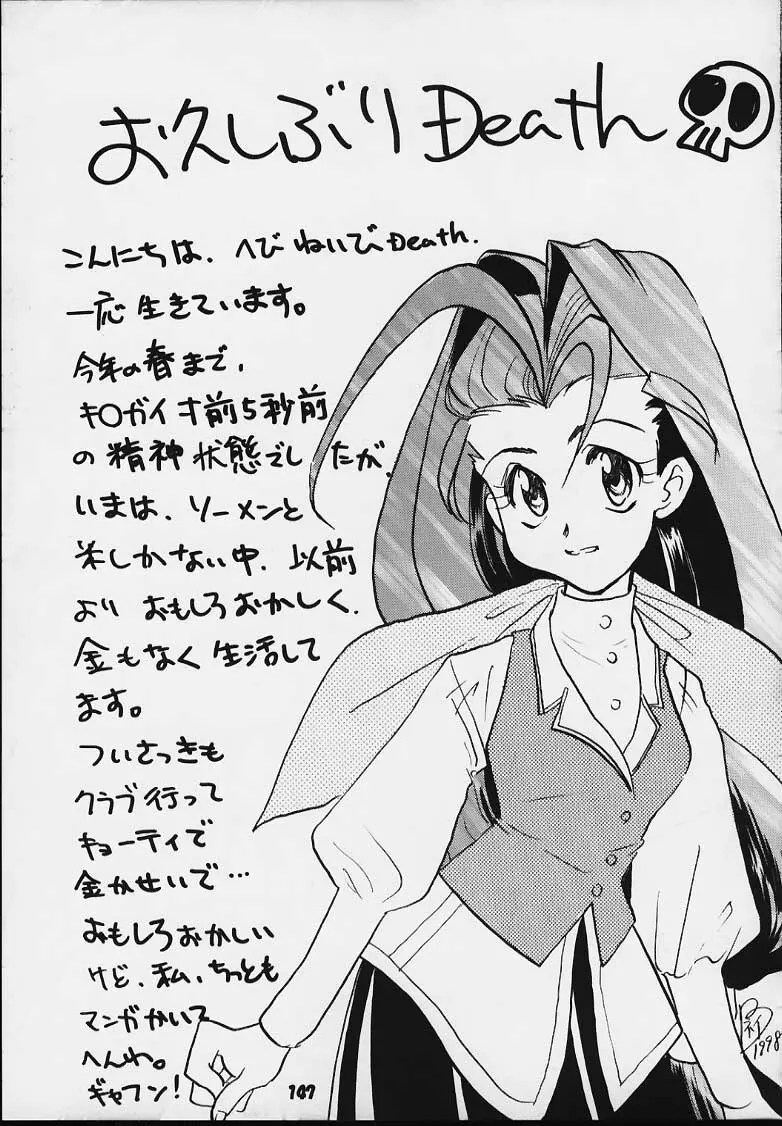 お久しぶりDeath
こんにちは、へびねいびDeath.
一応生きています。
今年の春まで、
キ○ガイ寸前5秒前
の精神状態でしたが、
いまは、ソーメンと
米しかない中、以前
よりおもしろおかしく、
金もなく生活して
ます。
ついさっきも
クラブ行って
キョーティで
金かせいで…
おもしろおかしい
けど、私、ちっとも
マンガかいて
へんわ。
ギャフン!
1998
107